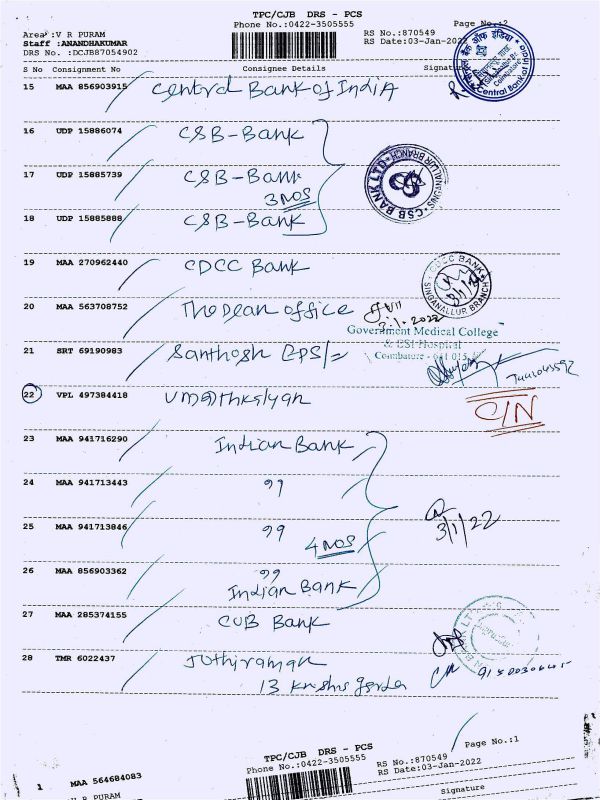 TPC/CJB DRS - PCS
Phone No.:0422-3505555
Page No.:2
Area :V R PURAM
Staff :ANANDHAKUMAR
DRS No. :DCJB87054902
RS No.:870549
RS Date:03-Jan-2022
S No Consignment No Consignee Details Signature
15 MAA 856903915 Central Bank of IndiA
16 UDP 15886074 CSB-Bank
17 UDP 15885739 CSB-Bank
3 NOS
18 UDP 15885888 CSB-Bank
CSB BANK LTD
SINGANALLUR BRANCH
19 MAA 270962440 CDCC Bank
CDCC BANK
SINGANALLUR BRANCH
3/1/22
20 MAA 563708752 The Dean office
3.1.2022
Government Medical College
& ESI Hospital
Coimbatore - 641 015
21 SRT 69190983 Santhosh
22 VPL 497384418
C/N
23 MAA 941716290 Indian Bank
24 MAA 941713443 "
25 MAA 941713846 "
4 NOS
3/1/22
26 MAA 856903362 "
Indian Bank
27 MAA 285374155 CUB Bank
28 TMR 6022437 Jothiraman
13
TPC/CJB DRS - PCS
Phone No.:0422-3505555
Page No.:1
RS No.:870549
RS Date:03-Jan-2022
1 MAA 564684083
V R PURAM
Signature